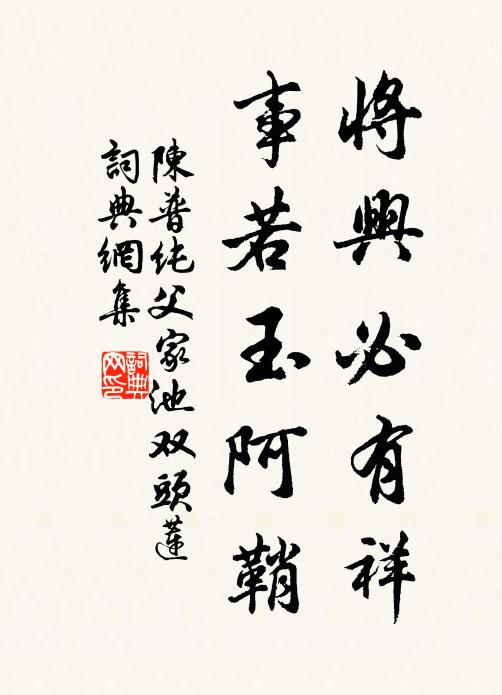 將興必有祥
事若玉阿鞘
陳普純父家池双頭蓮
詞典網集
詞典网印